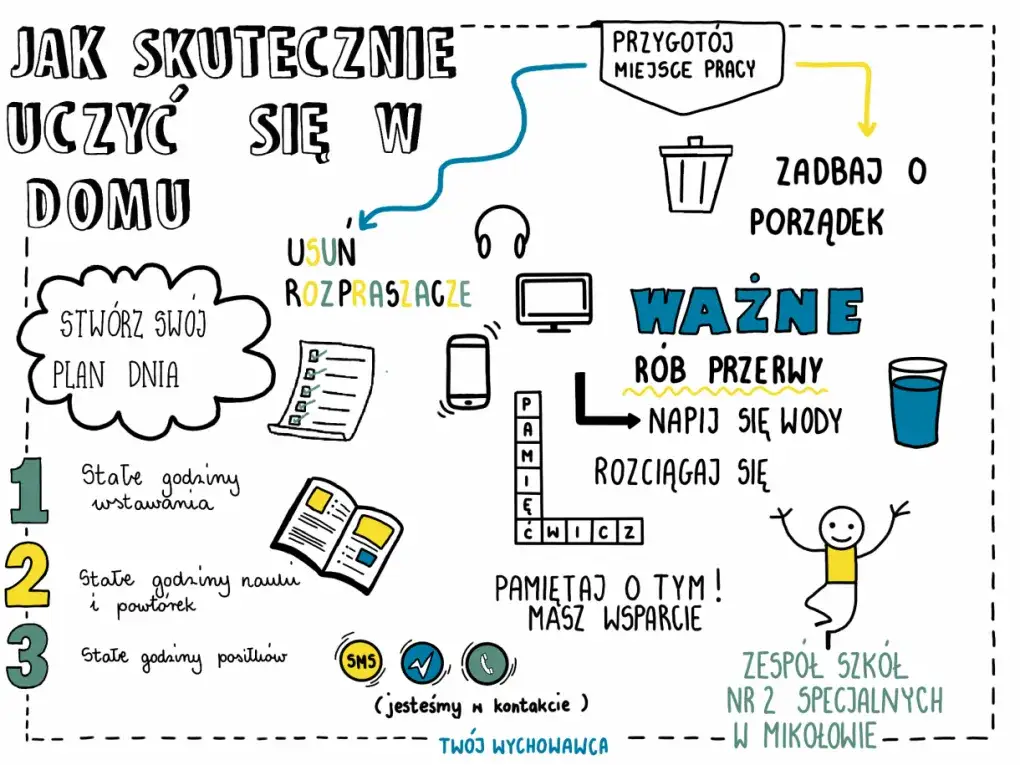 JAK SKUTECZNIE
UCZYĆ SIĘ W
DOMU
PRZYGOTÓJ
MIEJSCE PRACY
ZADBAJ O
PORZĄDEK
USUŃ
ROZPRASZACZE
STWÓRZ SWÓJ
PLAN DNIA
WAŻNE
RÓB PRZERWY
NAPIJ SIĘ WODY
ROZCIĄGAJ SIĘ
PAMIĘĆ
ĆWICZ
1
Stałe godziny
wstawania
2
Stałe godziny nauki
i powtórek
3
Stałe godziny posiłków
PAMIĘTAJ O TYM!
MASZ WSPARCIE
SMS
(jesteśmy w kontakcie)
TWÓJ WYCHOWAWCA
ZESPÓŁ SZKÓŁ
NR 2 SPECJALNYCH
W MIKOŁOWIE